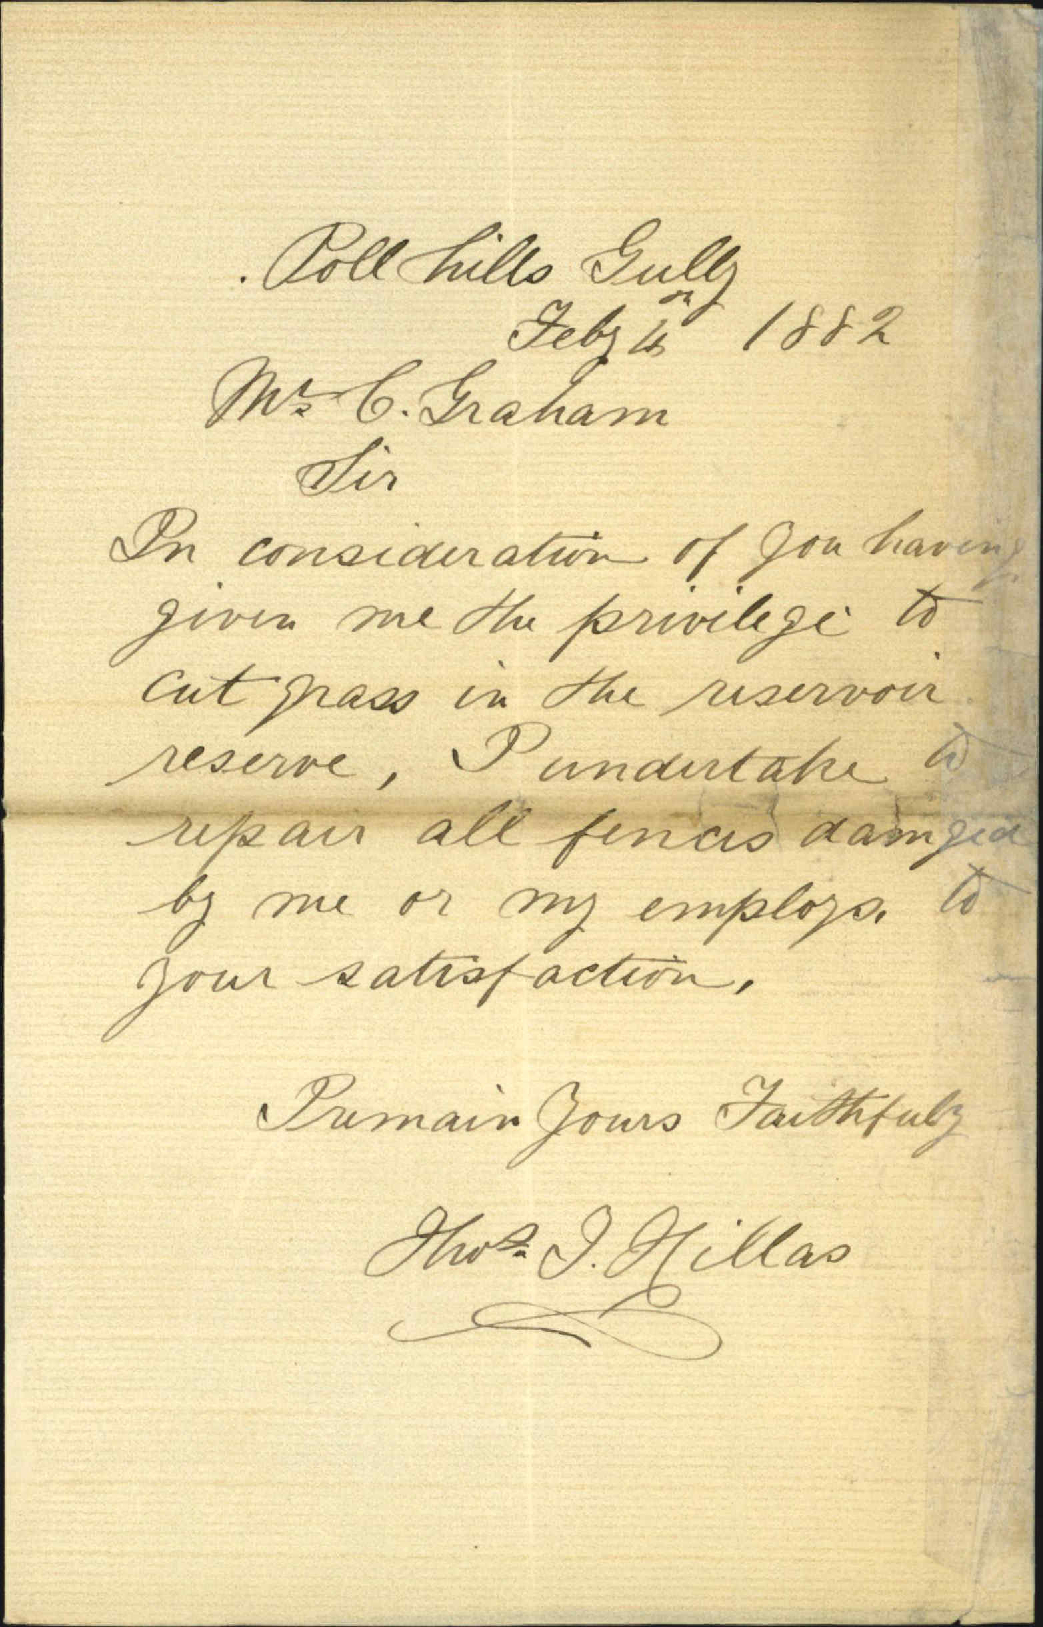 Poll hills Gully
Feby 1882
Mr. C. Graham
Sir
In consideration of you having
given me the privilege to
cut grass in the reservoir
reserve, I undertake to
repair all fences damged
by me or my employs. to
your satisfaction.
I remain Yours Faithfuly
Thos. J. Hillas